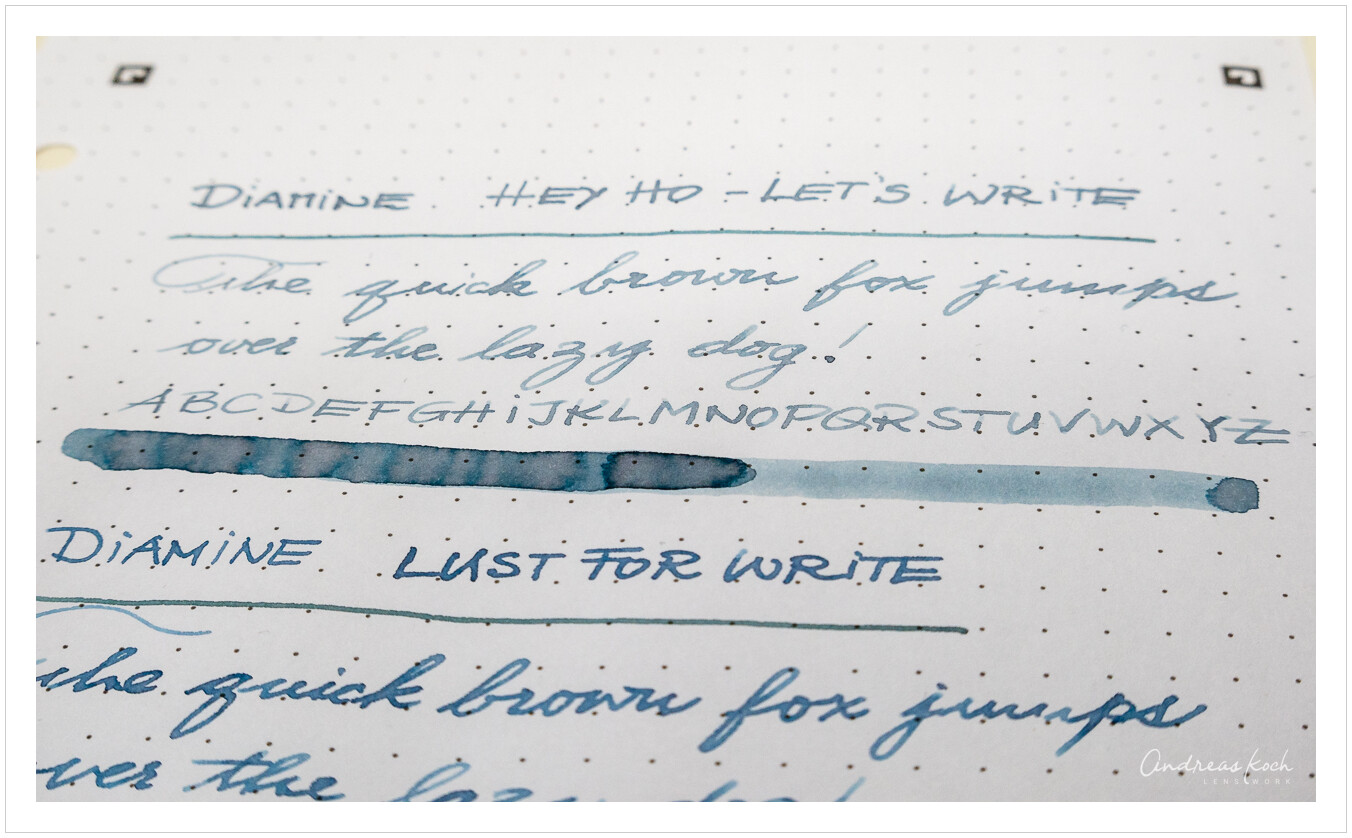 DiAMiNE HEY HO - LET'S WRiTE
The quick brown fox jumps
over the lazy dog!
ABCDEFGHiJKLMNOPQRSTUVWXYZ
DiAMiNE LUST FOR WRiTE
The quick brown fox jumps
over the lazy dog!
Andreas Koch
LENSWORK